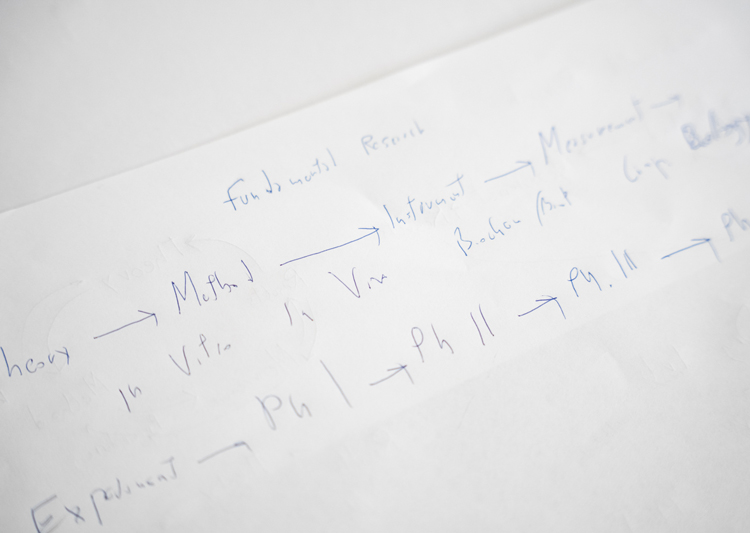 Fundamental Research
heory → Method → Instrument → Measurement →
In Vitro In Vivo Comp.
Experiment → Ph I → Ph II → Ph. III → Ph